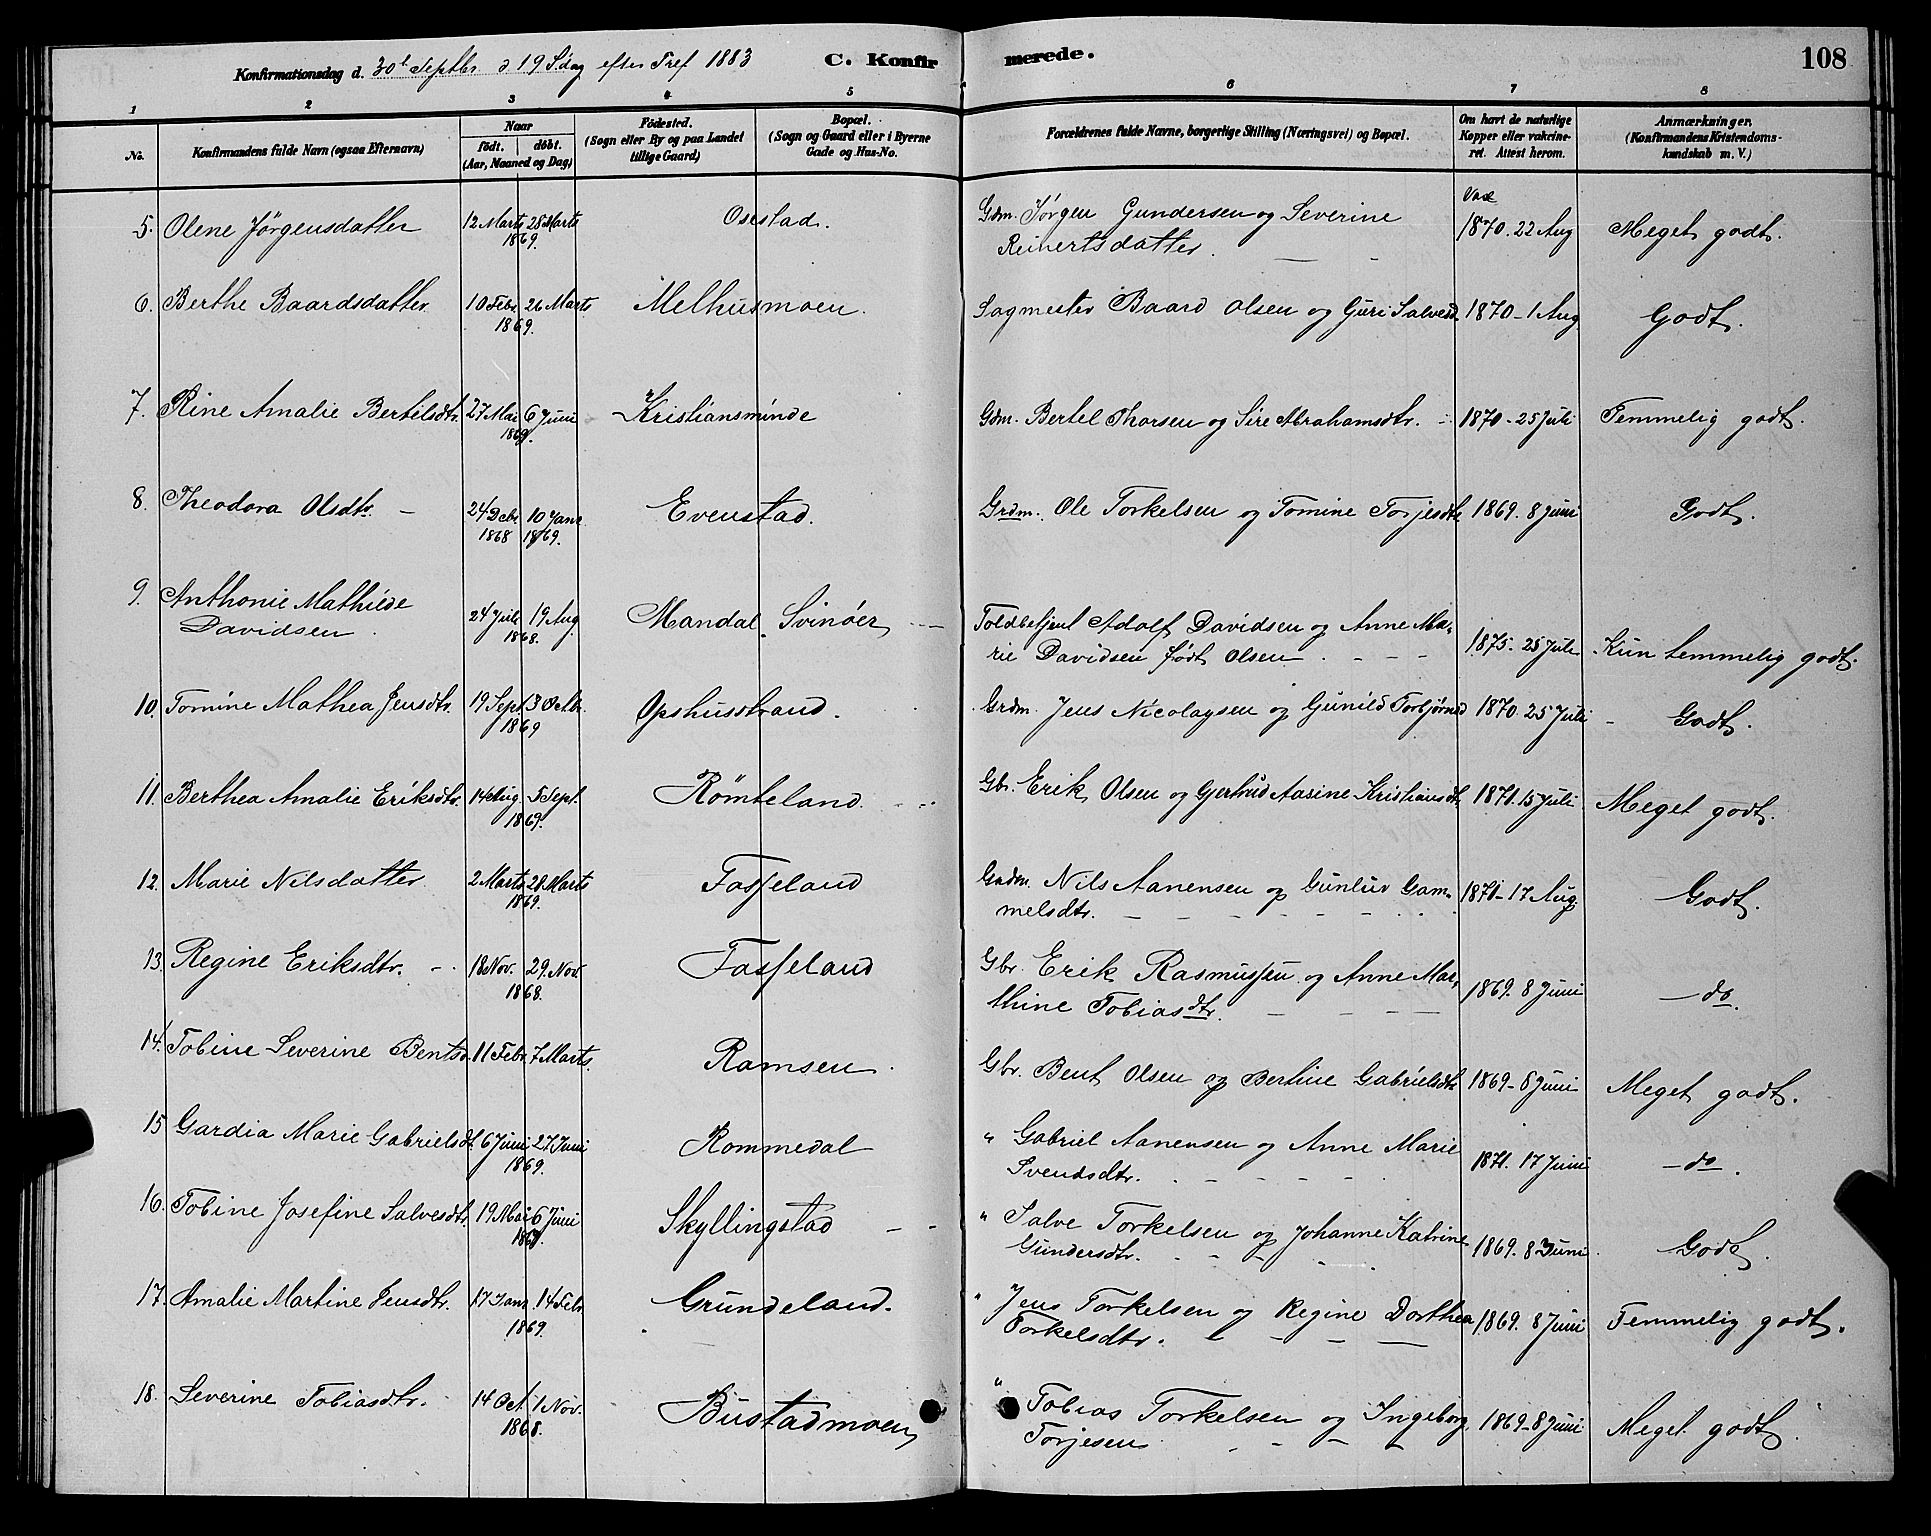 Konfirmationsdag d. 30te Septbr. d 19 S.dag efter Tref 1883 C. Konfirmerede. 108
1 2 3 4 5 6 7 8
No. Konfirmandens fulde Navn (ogsaa Efternavn) Naar födt. döbt. (Aar, Maaned og Dag) Födested. (Sogn eller By og paa Landet tillige Gaard) Bopæl. (Sogn og Gaard eller i Byerne Gade og Hus-No. Forældrenes fulde Navne, borgerlige Stilling (Næringsvei) og Bopæl. Om havt de naturlige Kopper eller vakcineret. Attest herom. Anmærkninger. (Konfirmandens Kristendomskundskab m. V.)
5. Olene Jørgensdatter 12 Marts 28 Marts 1869. Osestad. Gdm. Jørgen Gundersen og Severine Reinertsdatter. Vac 1870. 22 Aug Meget godt.
6. Berthe Baardsdatter 10 Febr. 26 Marts 1869. Melhusmoen. Sagmester Baard Olsen og Guri Salvesd. 1870 - 1 Aug Godt.
7. Rine Amalie Bertelsdtr. 27 Mai 6 Juni 1869. Kristiansminde Gdm. Bertel Thorsen og Sire Abrahamsdtr. - 1870 - 25 Juli Temmelig godt.
8. Theodora Olsdtr. - 24 Dcbr 10 Janr. 1868 1869. Evenstad. Grdm. Ole Torkelsen og Tomine Torjesdtr 1869. 8 Juni Godt.
9. Anthonie Mathilde Davidsen. 24 Juli 19 Aug. 1868. Mandal, Svinöer Toldbetjent Adolf Davidsen og Anne Marie Davidsen født Olsen. 1875. 25 Juli Kun temmelig godt.
10. Tomine Mathea Jensdtr. 19 Sept. 3 Octbr. 1869 Opshusstrand. Grdm. Jens Nicolaysen og Gunild Torbjørnsd 1870. 25 Juli - Godt.
11. Berthea Amalie Eriksdtr. 14 Aug. 5 Sept. 1869. Rømteland. Gbr. Erik Olsen og Gjertrud Aasine Kristiansdt. 1871. 15 Juli Meget godt.
12. Marie Nilsdatter 2 Marts 28 Marts 1869. Fasseland Gadm. Nils Aanensen og Gunluv Gammelsdtr. 1871 - 17 Aug. Godt.
13. Regine Eriksdtr. - 18 Nov. 29. Nov. 1868. Fasseland Gbr. Erik Rasmussen og Anne Marthine Tobiasdtr. 1869. 8 Juni - do.
14. Tobine Severine Bentsd. 11 Febr. 7 Marts. Ramsen. Gbr. Bent Olsen og Bertine Gabrielsdtr 1869 - 8 Juni Meget godt.
15 Gardia Marie Gabrielsdt. 6 Juni 27 Juni 1869. Rommedal " Gabriel Aanensen og Anne Marie Svendsdtr. 1871. 17 Juni - do.
16. Tobine Josefine Salvesdtr. 19 Mai 6 Juni Skyllingstad " Salve Torkelsen og Johanne Katrine Gundersdtr. 1869. 8 Juni. Godt.
17. Amalie Martine Jensdtr. 17 Janr. 14 Febr. 1869. Grundeland. " Jens Torkelsen og Regine Dorthea Torkelsdtr. 1869. 8 Juni Temmelig godt.
18. Severine Tobiasdtr. 14 Oct. 1 Nov. 1868. Bustadmoen " Tobias Torkelsen og Ingeborg Torjesen 1869 - 8 Juni Meget godt.